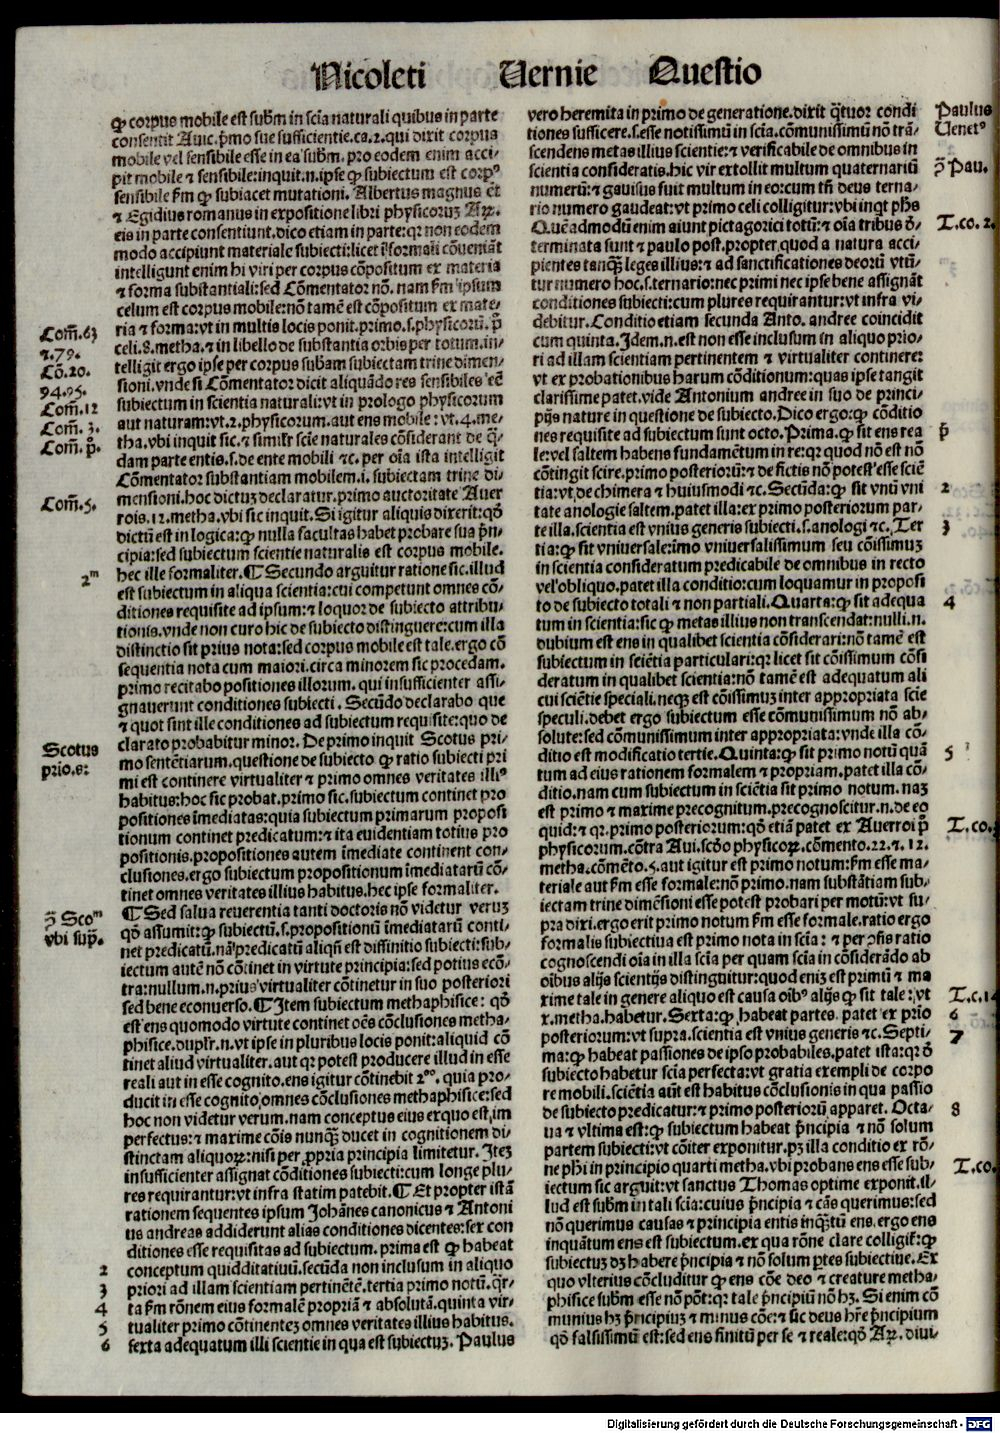 Nicoleti Uernie Questio
ꝙ corpus mobile est subm̄ in scīa naturali quibus in parte
consentit Auic. p̄mo sue sufficientie.ca.2.qui dixit corpus
mobile vel sensibile esse in ea subm̄. pro eodem enim acci⸗
pit mobile ⁊ sensibile:inquit.n.ipse ꝙ subiectum est corpꝰ
sensibile ẜm ꝙ subiacet mutationi. Albertus magnus et̄
⁊ Egidius romanus in expositione libri physicorꝫ Aꝝ.
eis in parte consentiunt.dico etiam in parte:qꝛ non eodem
modo accipiunt materiale subiecti:licet ī formali cōueniāt
intelligunt enim hi viri per corpus cōpositum ex materia
⁊ forma substantiali:sed Cōmentator nō. nam ẜm ipsum
celum est corpus mobile:nō tamē est cōpositum ex mate⸗
ria ⁊ forma:vt in multis locis ponit.primo.s.physicorū. p̄
celi.8.metha.⁊ in libello de substantia orbis per totum.in⸗
telligit ergo ipse per corpus subam̄ subiectam trine dimen⸗
sioni.vnde si Cōmentator dicit aliquādo res sensibiles eē
subiectum in scientia naturali:vt in prologo physicorum
aut naturam:vt.2.physicorum.aut ens mobile : vt.4.me⸗
tha.vbi inquit sic.⁊ simil'r scīe naturales cōsiderant de q̄⸗
dam parte entis.s.de ente mobili ⁊c. per oīa ista intelligit
Cōmentator substantiam mobilem.i. subiectam trine di⸗
mensioni.hoc dictuꝫ declaratur.primo auctoritate Auer
rois.12.metha.vbi sic inquit. Si igitur aliquis dixerit:qō
dictū est in logica:ꝙ nulla facultas habet probare sua p̄n⸗
cipia:sed subiectum scientie naturalis est corpus mobile.
hec ille formaliter.¶ Secundo arguitur ratione sic.illud
est subiectum in aliqua scientia:cui competunt omnes cō⸗
ditiones requisite ad ipsum:⁊ loquor de subiecto attribu⸗
tionis.vnde non curo hic de subiecto distinguere:cum illa
distinctio sit prius nota:sed corpus mobile est tale.ergo cō
sequentia nota cum maiori.circa minorem sic procedam.
primo recitabo positiones illorum. qui insufficienter assi⸗
gnauerunt conditiones subiecti. Secūdo declarabo que
⁊ quot sint ille conditiones ad subiectum requisite:quo de
clarato probabitur minor. De primo inquit Scotus pri⸗
mo sentētiarum.questione de subiecto ꝙ ratio subiecti pri
mi est continere virtualiter ⁊ primo omnes veritates illiꝰ
habitus:hoc sic probat.primo sic.subiectum continet pro
positiones īmediatas:quia subiectum primarum proposi
tionum continet predicatum:⁊ ita euidentiam totius pro
positionis.propositiones autem īmediate continent con⸗
clusiones.ergo subiectum propositionum īmediatarū cō⸗
tinet omnes veritates illius habitus.hec ipse formaliter.
¶ Sed salua reuerentia tanti doctoris nō videtur veruꝫ
qō assumit:ꝙ subiectū.s.propositionū īmediatarū conti⸗
net predicatū.nā predicatū aliqn̄ est diffinitio subiecti:sub⸗
iectum autē nō cōtinet in virtute principia:sed potius ecō⸗
tra:nullum.n.prius virtualiter cōtinetur in suo posteriori
sed bene econuerso.¶ Item subiectum methaphisice: qō
est ens quomodo virtute continet oēs cōclusiones metha⸗
phisice.duplr̄.n.vt ipse in pluribus locis ponit:aliquid cō
tinet aliud virtualiter.aut qꝛ potest producere illud in esse
reali aut in esse cognito.ens igitur cōtinebit 2ᵒ. quia pro⸗
ducit in esse cognito omnes cōclusiones methaphisice:sed
hoc non videtur verum.nam conceptus eius ex quo est im
perfectus:⁊ maxime cōis nunqꝫ ducet in cognitionem di⸗
stinctam aliquoꝝ:nisi per ꝓpria principia limitetur. Iteꝫ
insufficienter assignat cōditiones subiecti:cum longe plu⸗
res requirantur:vt infra statim patebit.¶ Et propter istā
rationem sequentes ipsum Johānes canonicus ⁊ Antoni
us andreas addiderunt alias conditiones dicentes:sex con
ditiones esse requisitas ad subiectum. prima est ꝙ habeat
conceptum quidditatiuū.secūda non inclusum in aliquo
priori ad illam scientiam pertinētē.tertia primo notū.q̄r⸗
ta ẜm rōnem eius formalē propriā ⁊ absolutā.quinta vir⸗
tualiter primo cōtinenteꝫ omnes veritates illius habitus.
sexta adequatum illi scientie in qua est subiectuꝫ. Paulus
Com̄.63
⁊.79.
Cō.20.
94.95.
Com̄.12
Com̄.3.
Com̄.p̄.
Com̄.5.
2ᵐ
Scotus
prio.s:
ↄ̄ Scoᵐ
vbi sup̄.
2
3
4
5
6
vero heremita in primo de generatione.dixit q̄tuor condi
tiones sufficere.s.esse notissimū in scīa.cōmunissimū nō trā⸗
scendens metas illius scientie:⁊ verificabile de omnibus in
scientia consideratis.hic vir extollit multum quaternariū
numerū:⁊ gauisus fuit multum in eo:cum tn̄ deus terna⸗
rio numero gaudeat:vt primo celi colligitur:vbi inqt phs̄
Quēadmodū enim aiunt pictagorici totū:⁊ oīa tribus d̄⸗
terminata sunt ⁊ paulo post.propter quod a natura acci⸗
pientes tanqꝫ leges illius:⁊ ad sanctificationes deorū vtū⸗
tur numero hoc.s.ternario:nec primi nec ipse bene assignāt
conditiones subiecti:cum plures requirantur:vt infra vi⸗
debitur.Conditio etiam secunda Anto. andree coincidit
cum quinta.Idem.n.est non esse inclusum in aliquo prio⸗
ri ad illam scientiam pertinentem ⁊ virtualiter continere:
vt ex probationibus harum cōditionum:quas ipse tangit
clarissime patet.vide Antonium andree in suo de princi⸗
pijs nature in questione de subiecto.Dico ergo:ꝙ cōditio
nes requisite ad subiectum sunt octo.Prima.ꝙ sit ens rea
le:vel saltem habens fundamētum in re:qꝛ quod nō est nō
cōtingit scire.primo posteriorū:⁊ de fictis nō potest esse sciē
tia:vt de chimera ⁊ huiusmodi ⁊c. Secūda:ꝙ sit vnū vni
tate anologie saltem.patet illa:ex primo posteriorum par⸗
te illa.scientia est vnius generis subiecti.s.anologi ⁊c. Ter
tia:ꝙ sit vniuersale:īmo vniuersalissimum seu cōissimuꝫ
in scientia consideratum predicabile de omnibus in recto
vel obliquo.patet illa conditio:cum loquamur in proposi
to de subiecto totali ⁊ non partiali.Quarta:ꝙ sit adequa
tum in scientia:sic ꝙ metas illius non transcendat:nulli.n.
dubium est ens in qualibet scientia cōsiderari:nō tamē est
subiectum in sciētia particulari:qꝛ licet sit cōissimum cōsi
deratum in qualibet scientia:nō tamē est adequatum ali
cui sciētie speciali.neqꝫ est cōissimuꝫ inter appropriata scīe
speculi.debet ergo subiectum esse cōmunissimum nō ab⸗
solute:sed cōmunissimum inter appropriata:vnde illa cō⸗
ditio est modificatio tertie.Quinta:ꝙ sit primo notū quā
tum ad eius rationem formalem ⁊ propriam.patet illa cō⸗
ditio.nam cum subiectum in sciētia sit primo notum. naꝫ
est primo ⁊ maxime precognitum.precognoscitur.n.de eo
quid:⁊ qꝛ.primo posteriorum:qō etiā patet ex Auerroi p̄
physicorum.cōtra Aui.scdo physicoꝝ.cōmento.22.⁊.12.
metha.cōmēto.5.aut igitur est primo notum:ẜm esse ma⸗
teriale aut ẜm esse formale:nō primo.nam substātiam sub⸗
iectam trine dimēsioni esse potest probari per motū:vt su⸗
pra dixi.ergo erit primo notum ẜm esse formale.ratio ergo
formalis subiectiua est primo nota in scīa: ⁊ per ↄn̄s ratio
cognoscendi oīa in illa scīa per quam scīa in cōsiderādo ab
oībus alijs scientijs distinguitur:quod enīꝫ est primū ⁊ ma
xime tale in genere aliquo est causa oībꝰ alijs ꝙ sit tale:vt
x.metha.habetur. Sexta:ꝙ habeat partes. patet ex prio
posteriorum:vt supra.scientia est vnius generis ⁊c. Septi⸗
ma:ꝙ habeat passiones de ipso probabiles.patet ista:qꝛ d̄
subiecto habetur scīa perfecta:vt gratia exempli de corpo
re mobili.sciētia aūt est habitus cōclusionis in qua passio
de subiecto predicatur:⁊ primo posteriorū apparet. Octa⸗
ua ⁊ vltima est:ꝙ subiectum habeat p̄ncipia ⁊ nō solum
partem subiecti:vt cōiter exponitur.pꝫ illa conditio ex rō⸗
ne phi in principio quarti metha.vbi probans ens esse sub⸗
iectum sic arguit:vt sanctus Thomas optime exponit.il⸗
lud est subm̄ in tali scīa:cuius p̄ncipia ⁊ cās querimus:sed
nō querimus causas ⁊ principia entis inqꝫtū ens.ergo ens
inquātum ens est subiectum.ex qua rōne clare colligit̄:ꝙ
subiectuꝫ dꝫ habere p̄ncipia ⁊ nō solum ptes subiectiue. Ex
quo vlterius cōcluditur ꝙ ens cōe deo ⁊ creature metha⸗
phisice subm̄ esse nō pōt:qꝛ tale p̄ncipiū nō hꝫ. Si enim cō
munius hꝫ p̄ncipiuꝫ ⁊ minus cōe:⁊ sic deus hr̄e p̄ncipium
qō falsissimū est:sed ens finitū per se ⁊ reale:qō Aꝝ. diui⸗
Paulus
Uenetꝰ
ↄ̄ Pau.
T.co.2.
p̄
2
3
4
5
T.co.
T.c.14
6
7
8
T.co.
Digitalisierung gefördert durch die Deutsche Forschungsgemeinschaft - DFG